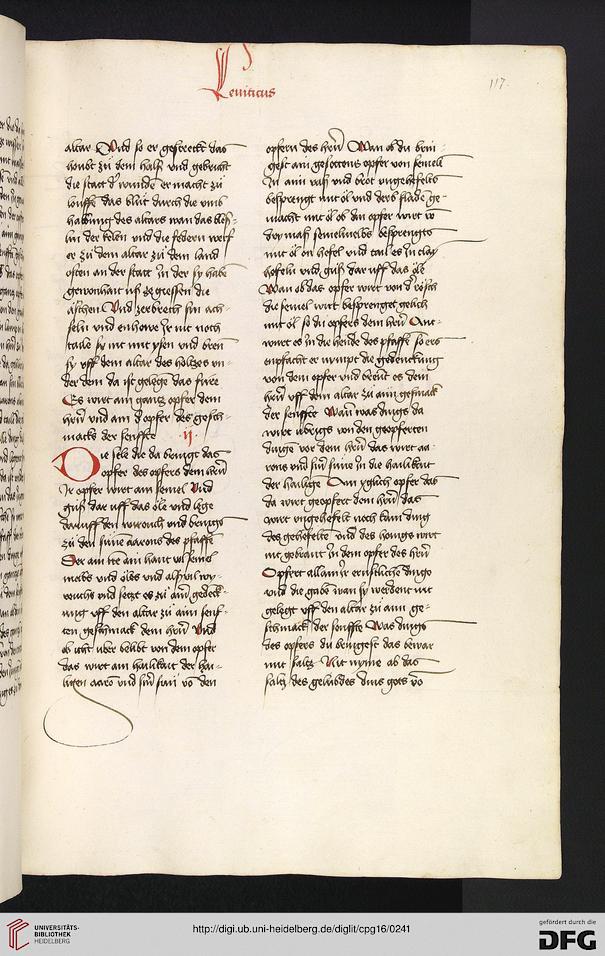 Leuiticus
117.
altar Vnd so er gestreckt das
houbt zů dem halß vnd gebricht
die statt d' wunde er macht zů
louffe das blůt durch die vmb
habung des altars wan das bleß
lin der kelen vnd die federn werf
er zů dem altar zů dem land
osten an der statt in der sy habe
gewonhait vß ze giessen die
äschen Vnd zerbrech sin ach-
seln vnd enhowe sy nit noch
taile sy nit mit ysen vnd bren
sy vff dem altar des holtzes vn-
der dem da ist gelege das füre
Es wirt ain gantz opfer dem
hern vnd ain d' opfer des gesch-
macks der senffte ij.
Die sele die da bringt das
opfer des opfers dem hern
Ir opfer wirt ain semel Vnd
güß dar vff das öle vnd lege
daruff den wirouch vnd bringe
zů den süne aarons des pfaffe
Der ain nem ain hant vol semel
melbs vnd öles vnd allsvil wy-
rouchs vnd setze es zů ainer gedeck-
nuß vff den altar zů ain senf-
ten geschmack dem hern Vnd
ob icht vber belibt von dem opfer
das wirt ain hailikait der hai-
ligen aaron vnd siner sun von den
opfern des hern Wan ob du brin-
gest ain gesottens opfer von semeln
in ain vaß vnd brot vngehefelts
besprengt mit öl vnd derb flade ge-
macht mit öl ob din opfer wirt von
der maß semelmelbs besprengts
mit öl on hefel vnd tail es in clay
hefeln vnd güß dar vff das öle
Wan ob das opfer wirt von d' rösch
die semel wirt besprenget gelich
mit öl so du opfers dem hern Ant-
wirt es in die hende des pfaffe so ers
enpfacht er nympt die gedencknuß
von dem opfer vnd brent es dem
hern vff dem altar zů ain gesmack
der senffte Wan was dings da
wirt vbrigs von den geopferten
dinge vor dem hern das wirt aa-
rons vnd siner süne in die hailikait
der hailige Ain yglich opfer das
da wirt geopfert dem hern das
wirt vngehefelt noch kain ding
des gehefelte vnd des honigs wirt
nit gebrant in dem opfer des hern
Opfert allain ir erstliche dinge
vnd die gabe wan sy werdent nit
gelegt vff den altar zů ain ge-
schmack der senffte Was dings
des opfers du bringest das bewar
mit saltz Nit nyme ab das
saltz des gelübdes dins gots von
UNIVERSITÄTS-
BIBLIOTHEK
HEIDELBERG
http://digi.ub.uni-heidelberg.de/diglit/cpg16/0241
gefördert durch die
DFG